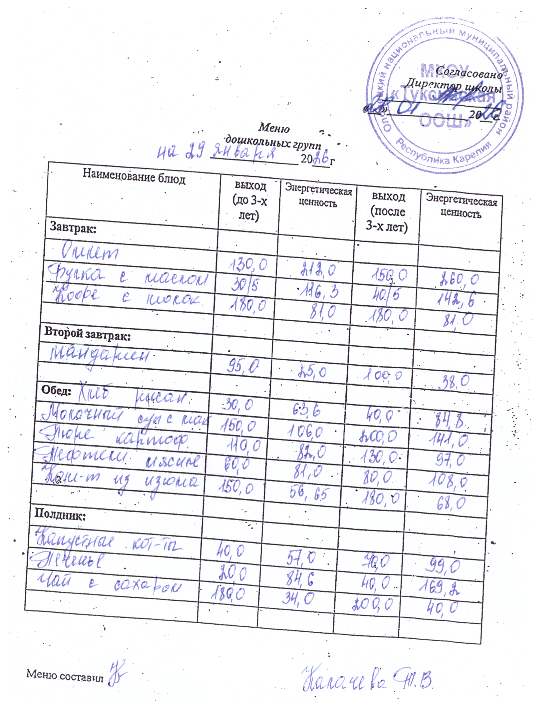 Согласовано
Директор школы
Олонецкий национальный муниципальный район
МКОУ
«Туксинская
ООШ»
Республика Карелия
20 26
Меню
дошкольных групп
на 29 января 2026 г
Наименование блюд выход (до 3-х лет) Энергетическая ценность выход (после 3-х лет) Энергетическая ценность
Завтрак:
Омлет 130,0 212,0 150,0 260,0
Булка с маслом 30/5 116,3 40/5 142,6
Кофе с молок 180,0 81,0 180,0 81,0
Второй завтрак:
Мандарин 95,0 25,0 100,0 38,0
Обед: Хлеб ржан. 30,0 63,6 40,0 84,8
Молочный суп с мак 150,0 106,0 200,0 141,0
Пюре картоф. 110,0 82,0 130,0 97,0
Тефтели мясные 60,0 81,0 80,0 108,0
Комп-т из изюма 150,0 56,65 180,0 68,0
Полдник:
Капустные кот-ты 40,0 57,0 70,0 99,0
Печенье 20,0 84,6 40,0 169,2
Чай с сахаром 180,0 34,0 200,0 40,0
Меню составил
Калачева Т.В.